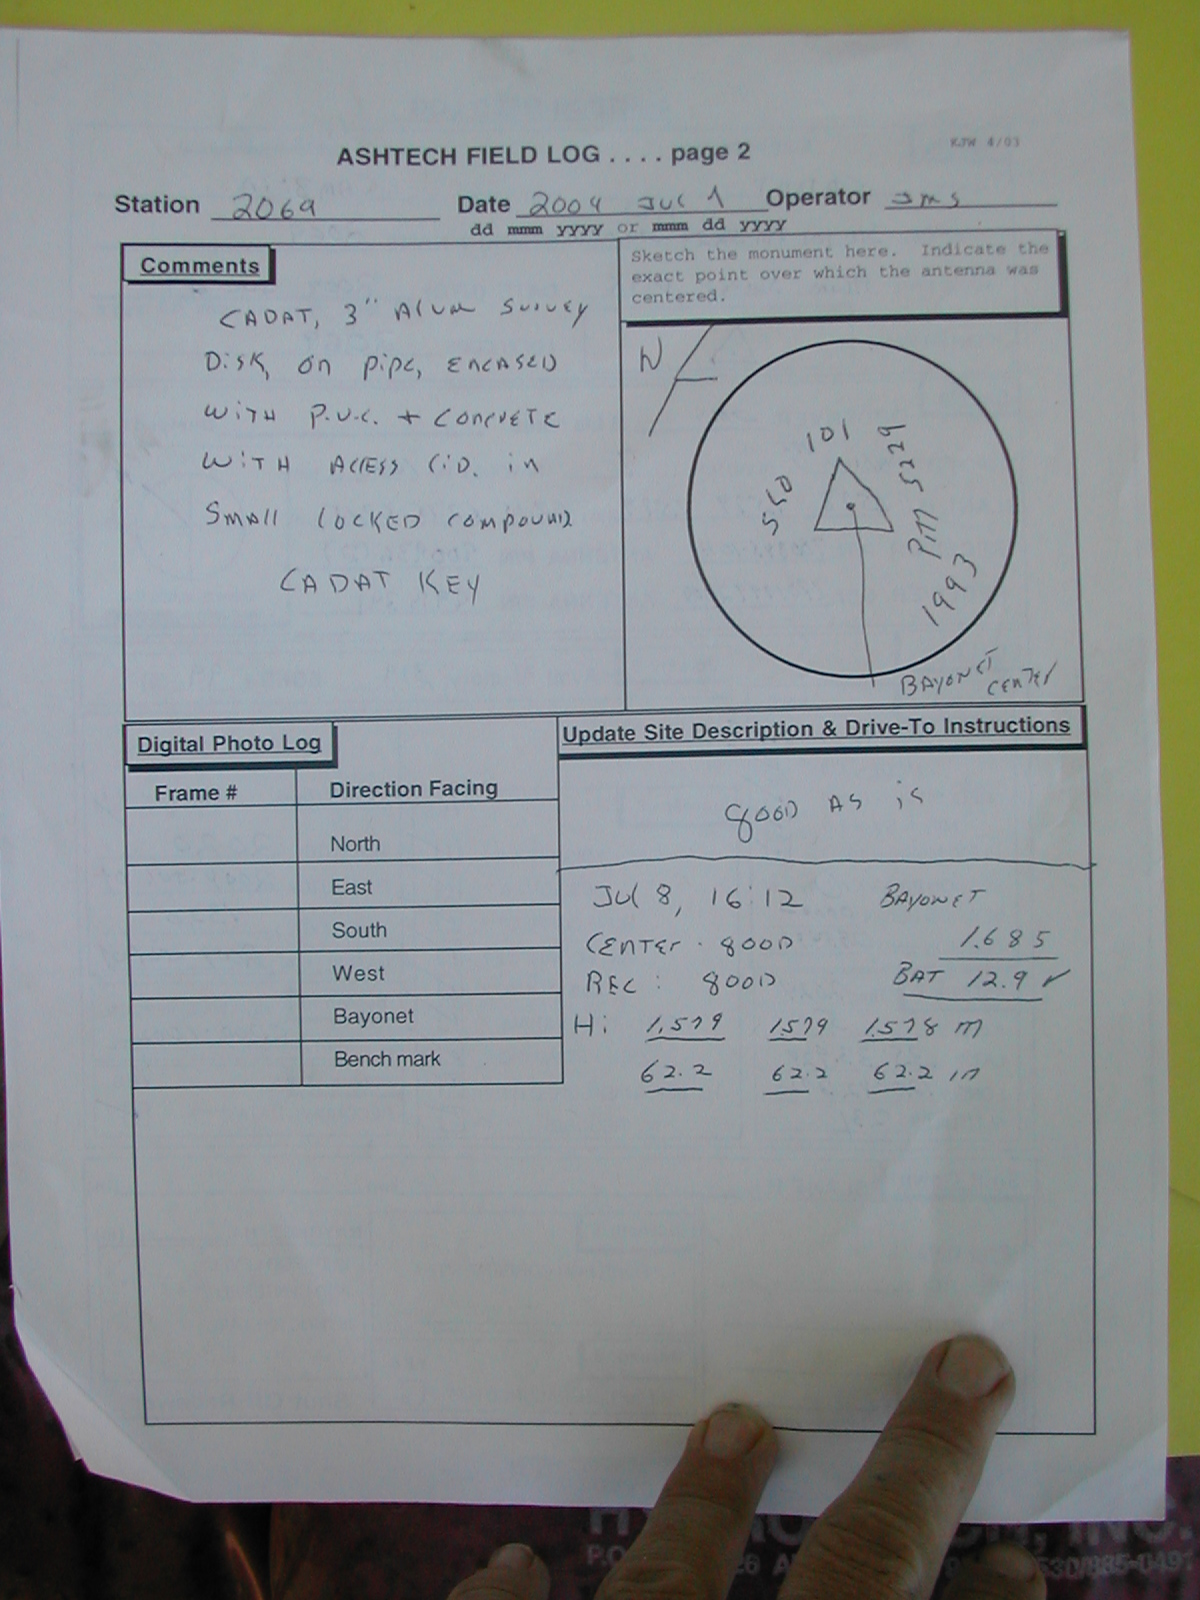 KJW 4/03
ASHTECH FIELD LOG . . . . page 2
Station 2069 Date 2004 JUL 1 Operator JMS
dd mmm yyyy or mmm dd yyyy
Comments
CADAT, 3" Alum Survey
Disk, on pipe, ENCASED
WITH P.V.C. + CONCRETE
WITH ACCESS LID. in
Small LOCKED COMPOUND
CADAT KEY
Sketch the monument here. Indicate the
exact point over which the antenna was
centered.
N
SLO 101 PM 5229
1993
BAYONET
CENTER
Digital Photo Log
Frame # Direction Facing
North
East
South
West
Bayonet
Bench mark
Update Site Description & Drive-To Instructions
GOOD AS is
Jul 8, 16:12 BAYONET
CENTER . GOOD 1.685
REC : GOOD BAT 12.9 ✓
Hi 1.579 1.579 1.578 m
62.2 62.2 62.2 in
INC.
P.O.
530/885-0491